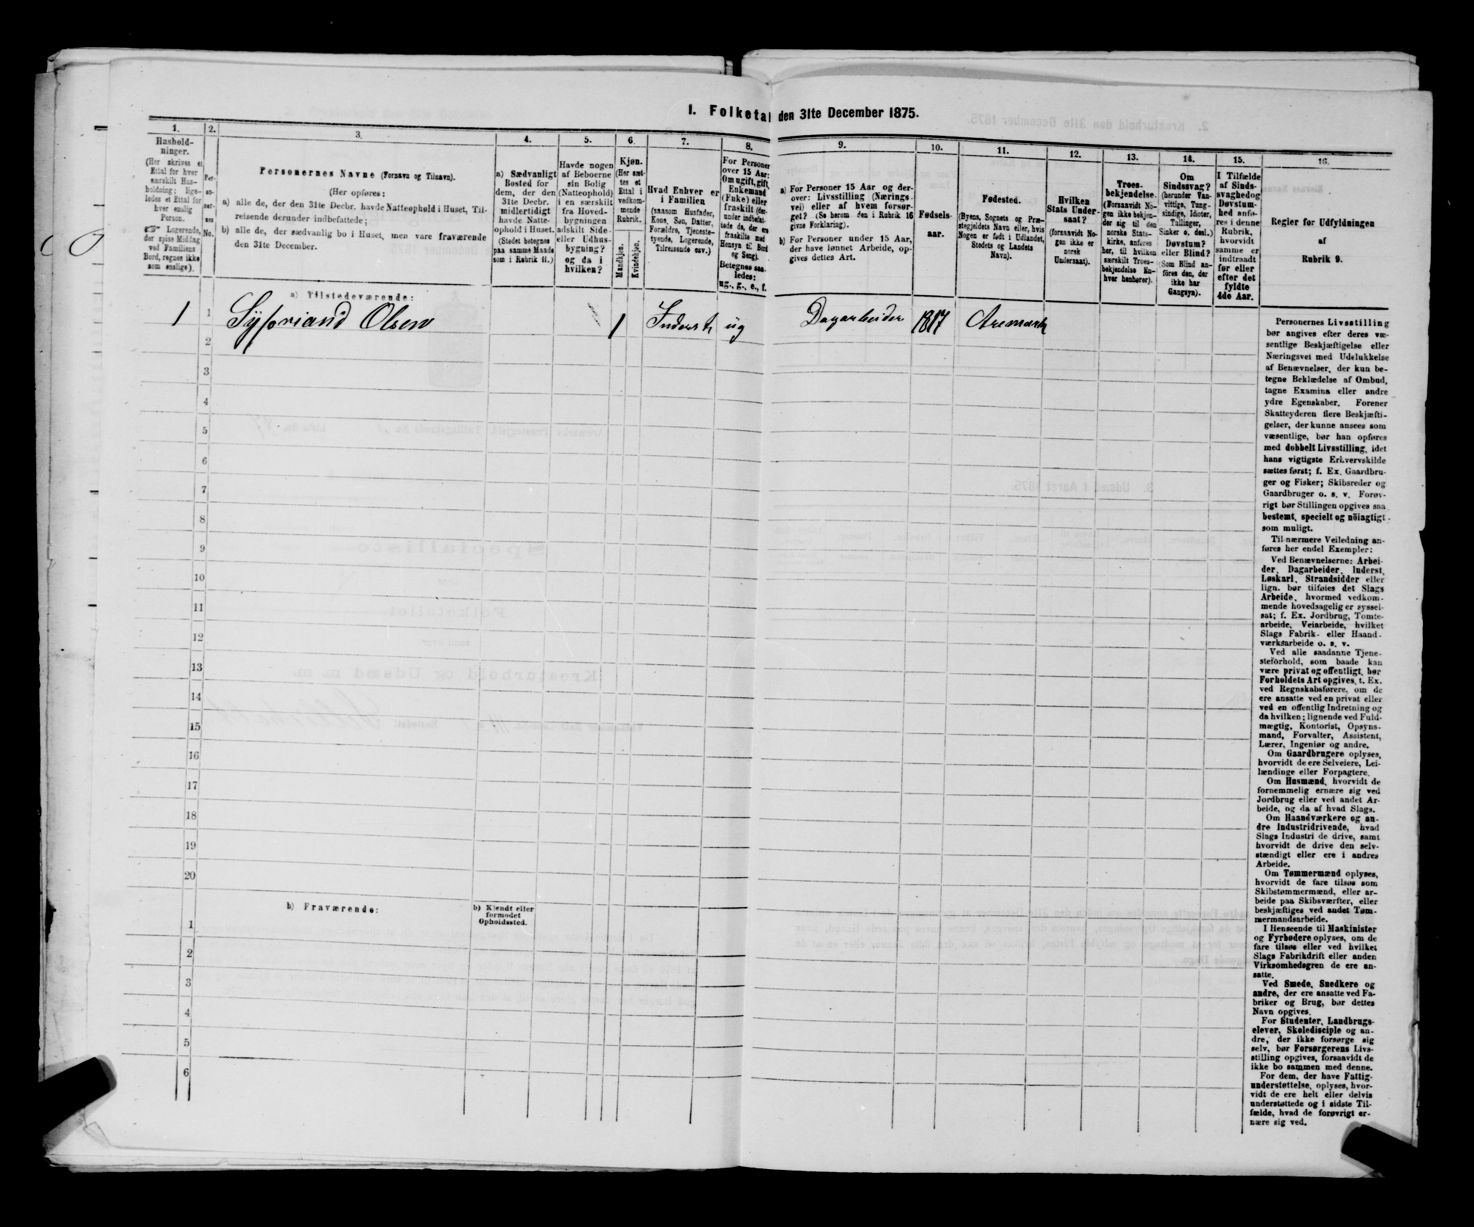 I. Folketal den 31te December 1875.
1.
Husholdninger.
(Her skrives et
Ettal for hver
særskilt Husholdning;
ledes et Ettal for
hver enslig
Person.
☞ Logerende,
der spise Middag
ved Familiens
Bord, regnes ikke
som enslige).
2.
Personernes
No.
3.
Personernes Navne (Fornavn og Tilnavn).
(Her opføres:
a) alle de, der den 31te Decbr. havde Natteophold i Huset, Tilreisende
derunder indbefattede;
b) alle de, der sædvanlig bo i Huset, men vare fraværende
den 31te December.
4.
a) Sædvanligt
Bosted for
dem, der den
31te Decbr.
midlertidigt
havde Natteophold
i Huset.
(Stedet betegnes
paa samme Maade
som i Rubrik 11.)
5.
Havde nogen
af Beboerne
sin Bolig
(Natteophold)
i en særskilt
fra Hovedbygningen
adskilt Side-
eller Udhusbygning?
og da i
hvilken?
6.
Kjøn.
(Her sættes
et
Ettal i
vedkommende
Rubrik.
Mandkjøn.
Kvindekjøn.
7.
Hvad Enhver er
i Familien
(saasom Husfader,
Kone, Søn, Datter,
Forældre, Tjenestetyende,
Logerende,
Tilreisende osv.)
8.
For Personer
over 15 Aar:
Om ugift, gift,
Enkemand
(Enke) eller
fraskilt
Betegnes saaledes:
ug., g., e., f.
9.
a) For Personer 15 Aar og derover:
Livsstilling (Næringsvei)
eller af hvem forsørget?
(Se herom den i Rubrik 16
givne Forklaring).
b) For Personer under 15 Aar,
der have lønnet Arbeide, opgives
dettes Art.
10.
Fødselsaar.
11.
Fødested.
(Byens, Sognets og Præstegjeldets
Navn eller, hvis
Nogen er født i Udlandet,
Stedets og Landets
Navn).
12.
Hvilken
Stats Undersaat?
(forsaavidt Nogen
ikke er
norsk
Undersaat).
13.
Troesbekjendelse.
(Forsaavidt Nogen
ikke bekjender
sig til den
norske Statskirke,
anføres
her, til hvilken
særskilt Troesbekjendelse
En-
hver henhører).
14.
Om
Sindssvag?
(herunder Vanvittige,
Tungsindige,
Idioter,
Tullinger,
Sinker o. desl.)
Døvstum?
eller Blind?
(Som Blind anføres
den, der
ikke har
Gangsyn).
15.
I Tilfælde
af Sindssvaghed
og
Døvstumhed
anføres
i denne
Rubrik,
hvorvidt
samme er
indtraadt
før eller
efter det
fyldte
4de Aar.
16.
Regler før Udfyldningen
af
Rubrik 9.
a) Tilstedeværende:
1 1 Olsen 1 ug Dagarbeider 1817 Aremark
2
3
4
5
6
7
8
9
10
11
12
13
14
15
16
17
18
19
20
b) Fraværende:
b) Kjendt eller
formodet
Opholdssted.
1
2
3
4
5
6
Personernes Livsstilling
bør angives efter deres væsentlige
Beskjæftigelse eller
Næringsvei med Udelukkelse
af Benævnelser, der kun betegne
Beklædelse af Ombud,
tagne Examina eller andre
ydre Egenskaber. Forener
Skatteyderen flere Beskjæftigelser,
der kunne ansees som
væsentlige, bør han opføres
med dobbelt Livsstilling, idet
hans vigtigste Erhvervskilde
sættes først; f. Ex. Gaardbruger
og Fisker; Skibsreder og
Gaardbruger o. s. v. Forøvrigt
bør Stillingen opgives saa
bestemt, specielt og nöiagtigt
som muligt.
Til nærmere Veiledning anføres
her endel Exempler:
Ved Benævnelserne: Arbeider,
Dagarbeider, Inderst,
Løskarl, Strandsidder eller
lign. bør tilføies det Slags
Arbeide, hvormed vedkommende
hovedsagelig er sysselsat;
f. Ex. Jordbrug, Tomtearbeide,
Veiarbeide, hvilket
Slags Fabrik- eller Haandværksarbeide
o. s. v.
Ved alle saadanne Tjenesteforhold,
som baade kan
være privat og offentligt, bør
Forholdets Art opgives, t. Ex.
ved Regnskabsførere, om de
ere ansatte ved en privat eller
ved en offentlig Indretning og
da hvilken; lignende ved Fuldmægtig,
Kontorist, Opsynsmand,
Forvalter, Assistent,
Lærer, Ingeniør og andre.
Om Gaardbrugere oplyses,
hvorvidt de ere Selveiere, Leilændinge
eller Forpagtere.
Om Husmænd, hvorvidt de
fornemmelig ernære sig ved
Jordbrug eller ved andet Arbeide,
og da af hvad Slags.
Om Haandværkere og andre
Industridrivende, hvad
Slags Industri de drive, samt
hvorvidt de drive den selvstændigt
eller ere i andres
Arbeide.
Om Tømmermænd oplyses,
hvorvidt de fare tilsøs som
Skibstømmermænd, eller arbeide
paa Skibsværfter, eller
beskjæftiges ved andet Tømmermandsarbeide.
I Henseende til Maskinister
og Fyrbødere oplyses, om de
fare tilsøs eller ved hvilket
Slags Fabrikdrift eller anden
Virksomhedsgren de ere ansatte.
Ved Smede, Snedkere og
andre, der ere ansatte ved Fabriker
og Brug, bør dettes
Navn opgives.
For Studenter, Landbrugselever,
Skoledisciple og andre,
der ikke forsørge sig
selv, bør Forsørgerens Livsstilling
opgives, forsaavidt de
ikke bo sammen med denne.
For dem, der have Fattigunderstøttelse,
oplyses, hvorvidt
de ere helt eller delvis
understøttede og i sidste Tilfælde,
hvad de forøvrigt ernære
sig ved.